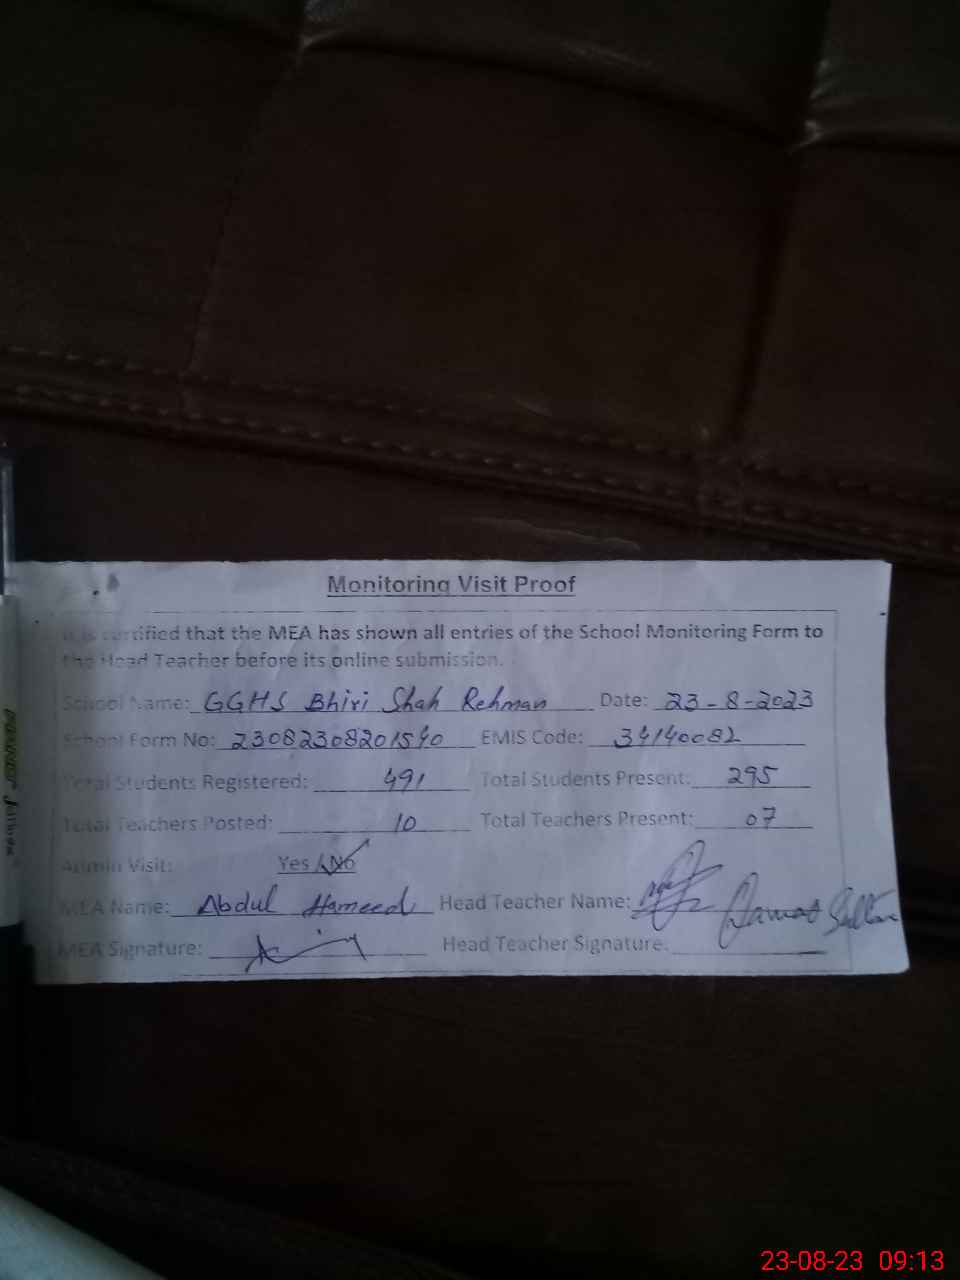 Monitoring Visit Proof
It is certified that the MEA has shown all entries of the School Monitoring Form to
the Head Teacher before its online submission.
School Name: GGHS Bhiri Shah Rehman Date: 23-8-2023
School Form No: 23082308201540 EMIS Code: 34140082
Total Students Registered: 491 Total Students Present: 295
Total Teachers Posted: 10 Total Teachers Present: 07
Admin Visit: Yes / No
MEA Name: Abdul Hameed Head Teacher Name: Sultan
MEA Signature: Head Teacher Signature:
23-08-23 09:13